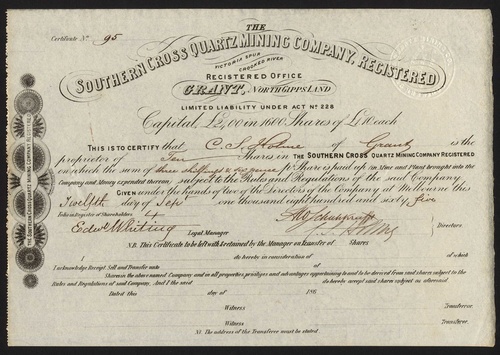 THE
Certificate No. 95
SOUTHERN CROSS QUARTZ MINING COMPANY, REGISTERED
VICTORIA SPUR
CROOKED RIVER
REGISTERED OFFICE
GRANT, NORTH GIPPSLAND
LIMITED LIABILITY UNDER ACT No 228
Capital, in 1600 Shares of £10 each
THIS IS TO CERTIFY that C. S. of Grant is the
proprietor of Ten Shares in THE SOUTHERN CROSS QUARTZ MINING COMPANY REGISTERED
on which the sum of three shillings & pence pr Share is paid up (in Mine and Plant brought into the
Company and Money expended thereon, subject to the Rules and Regulations of the said Company
GIVEN under the hands of two of the Directors of the Company at Melbourne this
Twelfth day of Sept one thousand eight hundred and sixty five
Folio in Register of Shareholders 4
Edwd Whiting Legal Manager
Directors
N.B. This Certificate to be left with & retained by the Manager on transfer of Shares
do hereby in consideration of of which
I acknowledge Receipt Sell and Transfer unto
Shares in the above named Company and all properties privileges and advantages appertaining to and to be derived from said shares subject to the
Rules and Regulations of said Company, And I the said do hereby accept said shares subject as aforesaid
Dated this day of 186
Witness Transferror
Witness Transferree
N.B. The address of the Transferree must be stated
THE SOUTHERN CROSS QUARTZ MINING COMPANY REGISTERED